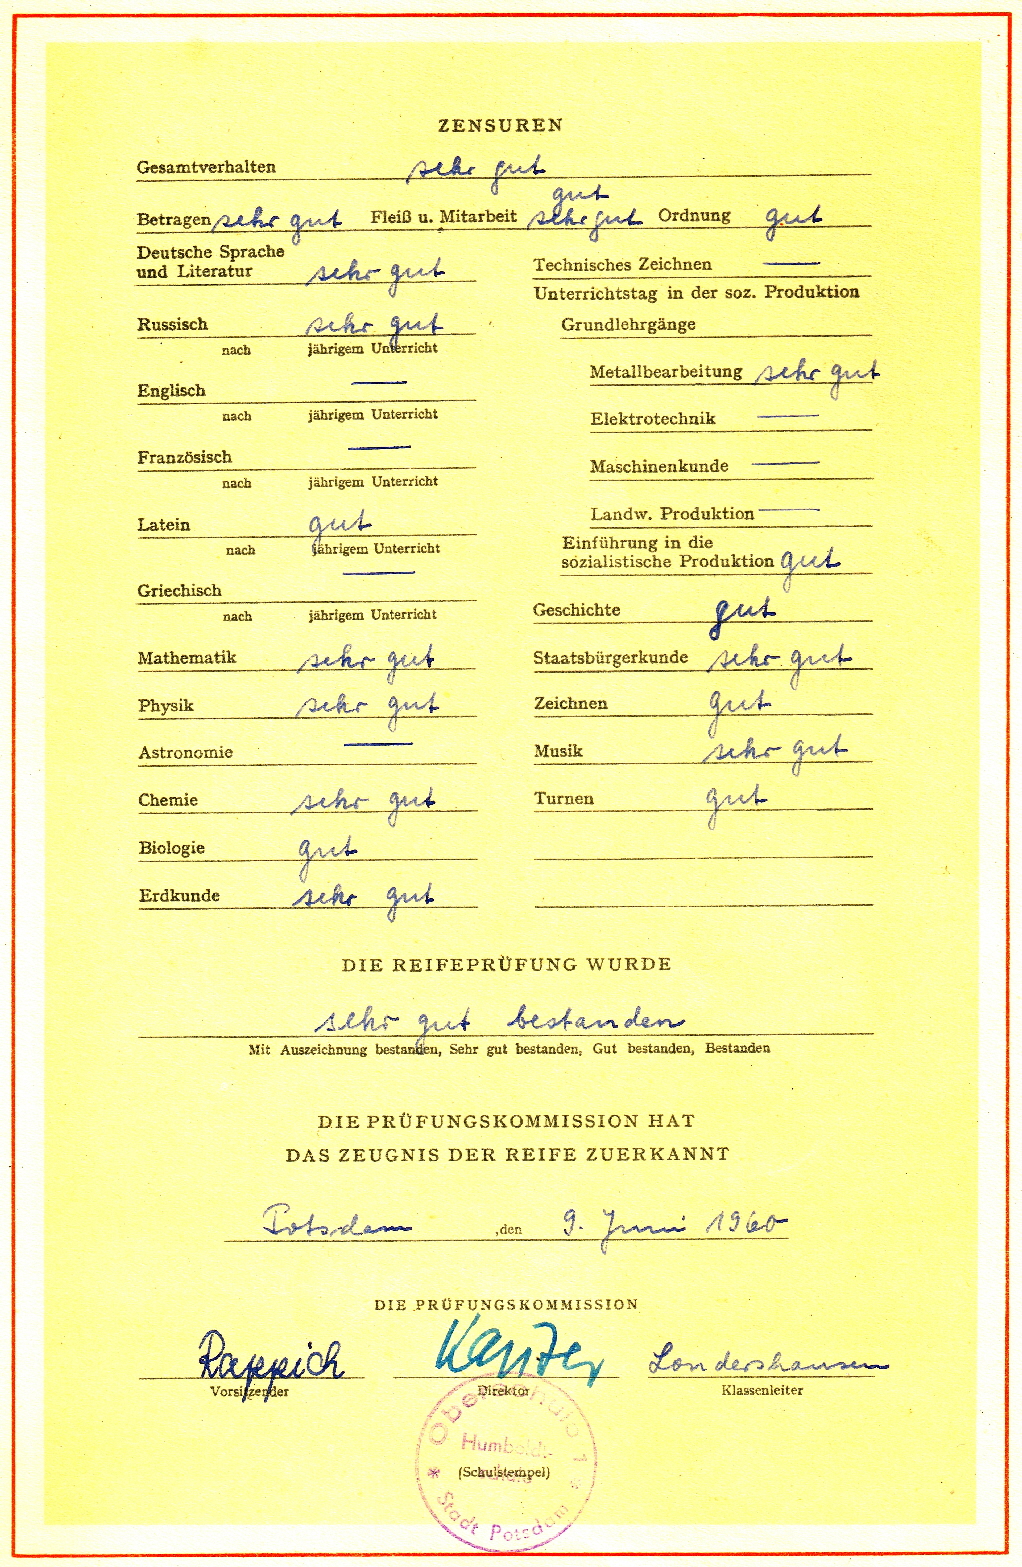 ZENSUREN
Gesamtverhalten sehr gut
gut
Betragen sehr gut Fleiß u. Mitarbeit sehr gut Ordnung gut
Deutsche Sprache
und Literatur sehr gut
Russisch sehr gut
nach jährigem Unterricht
Englisch —
nach jährigem Unterricht
Französisch —
nach jährigem Unterricht
Latein gut
nach jährigem Unterricht
Griechisch —
nach jährigem Unterricht
Mathematik sehr gut
Physik sehr gut
Astronomie —
Chemie sehr gut
Biologie gut
Erdkunde sehr gut
Technisches Zeichnen —
Unterrichtstag in der soz. Produktion
Grundlehrgänge
Metallbearbeitung sehr gut
Elektrotechnik —
Maschinenkunde —
Landw. Produktion —
Einführung in die
sozialistische Produktion gut
Geschichte gut
Staatsbürgerkunde sehr gut
Zeichnen gut
Musik sehr gut
Turnen gut
DIE REIFEPRÜFUNG WURDE
sehr gut bestanden
Mit Auszeichnung bestanden, Sehr gut bestanden, Gut bestanden, Bestanden
DIE PRÜFUNGSKOMMISSION HAT
DAS ZEUGNIS DER REIFE ZUERKANNT
Potsdam ,den 9. Juni 1960
DIE PRÜFUNGSKOMMISSION
Rappich Londershausen
Vorsitzender Direktor Klassenleiter
Oberschule 1
Humboldt-
(Schulstempel)
* Stadt Potsdam *